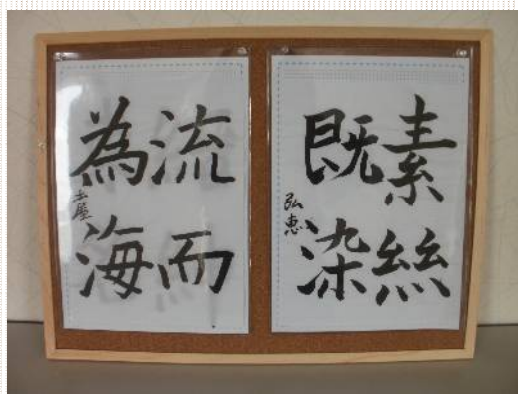 素絲
既染
弘恵
流而
為海
土屋